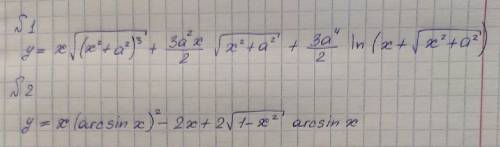 №1
y = x√((x²+a²)³) + 3a²x/2 √(x²+a²) + 3a⁴/2 ln(x+√(x²+a²))
№2
y = x(arcsin x)² - 2x + 2√(1-x²) arcsin x